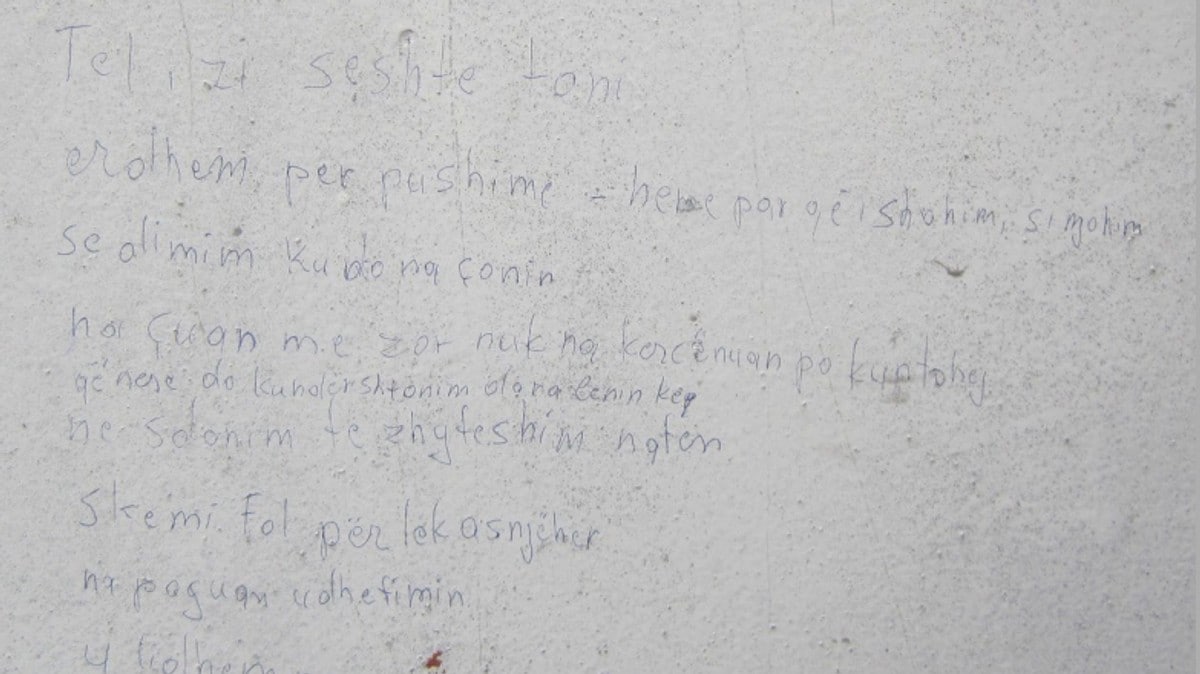 Tel i zi seshte toni
erdhem per pushime - here par që i shohim, si njohim
se dimim ku do na çonin
na çuan me zor nuk na kercënuan po kuptohej
që nese do kundërshtonim do na benin keq
ne sdonim te zhyteshim naten
skemi fol për lek asnjëher
na paguan udhetimin
u lidhem